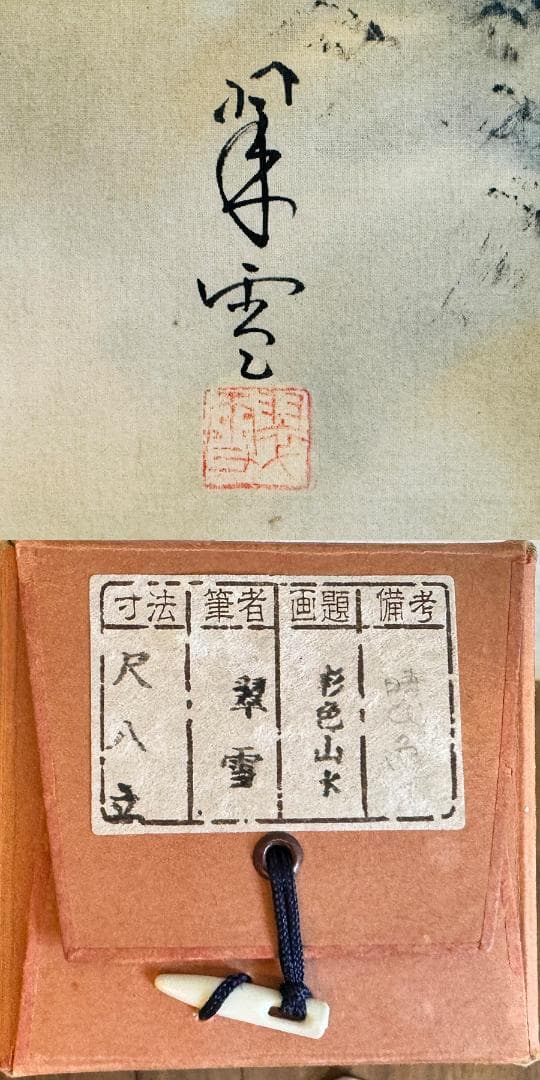 翠雪
翠雪
寸法
筆者
画題
備考
尺八立
翠雪
彩色山水